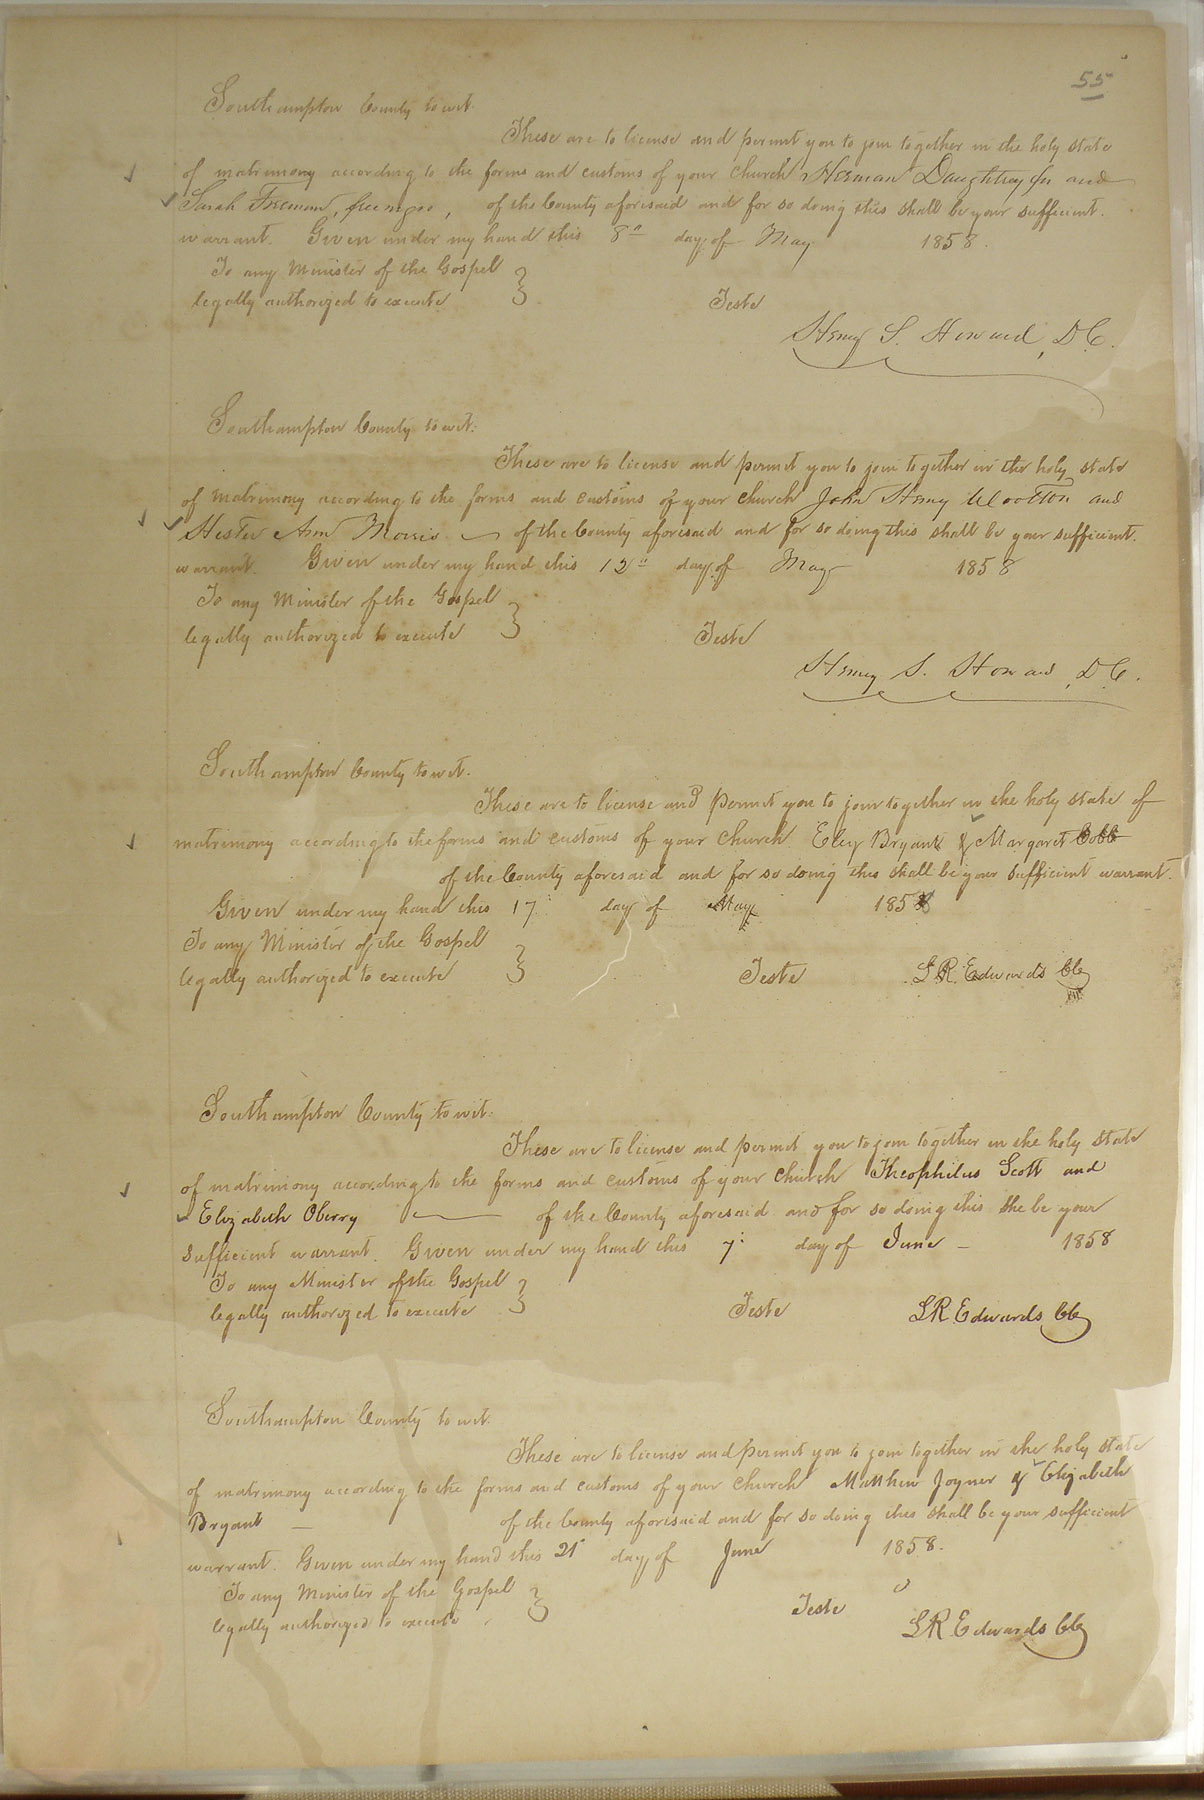 55
Southampton County to wit.
These are to license and permit you to join together in the holy state
of matrimony according to the forms and customs of your church Herman Daughtrey Jr and
Sarah Freeman, free negro, of the County aforesaid and for so doing this shall be your sufficient.
warrant. Given under my hand this 8" day of May 1858.
To any Minister of the Gospel
legally authorized to execute Teste
Henry S. Howard, D.C.
Southampton County to wit:
These are to license and permit you to join together in the holy state
of matrimony according to the forms and customs of your church John Henry Wootton and
Hester Ann Morris of the County aforesaid and for so doing this shall be your sufficient.
warrant. Given under my hand this 12" day of May 1858
To any Minister of the Gospel
legally authorized to execute Teste
Henry S. Howard, D.C.
Southampton County to wit.
These are to license and permit you to join together in the holy state of
matrimony according to the forms and customs of your church Eley Bryant & Margaret Cobb
of the County aforesaid and for so doing this shall be your sufficient warrant.
Given under my hand this 17 day of May 1858
To any Minister of the Gospel
legally authorized to execute Teste L R. Edwards Clk
Southampton County to wit:
These are to license and permit you to join together in the holy state
of matrimony according to the forms and customs of your church Theophilus Scott and
Elizabeth Oberry of the County aforesaid and for so doing this she be your
sufficient warrant Given under my hand this 7: day of June 1858
To any Minister of the Gospel
legally authorized to execute Teste LR. Edwards Clk
Southampton County to wit.
These are to license and permit you to join together in the holy state
of matrimony according to the forms and customs of your church Matthew Joyner & Elizabeth
Bryant of the County aforesaid and for so doing this shall be your sufficient
warrant. Given under my hand this 21 day of June 1858.
To any Minister of the Gospel
legally authorized to execute Teste
LR Edwards Clk